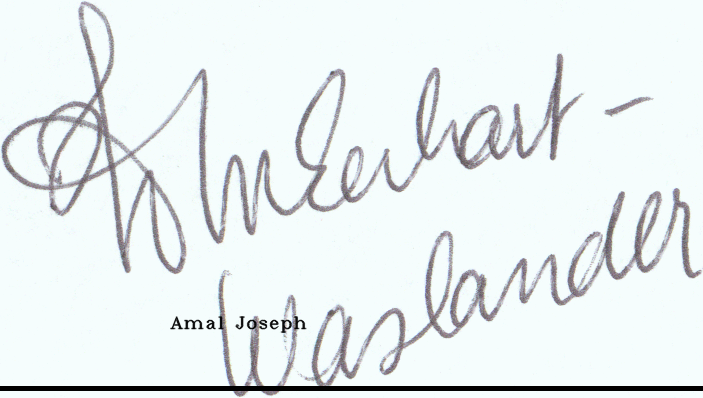 Eerhart -
Waslander
Amal Joseph